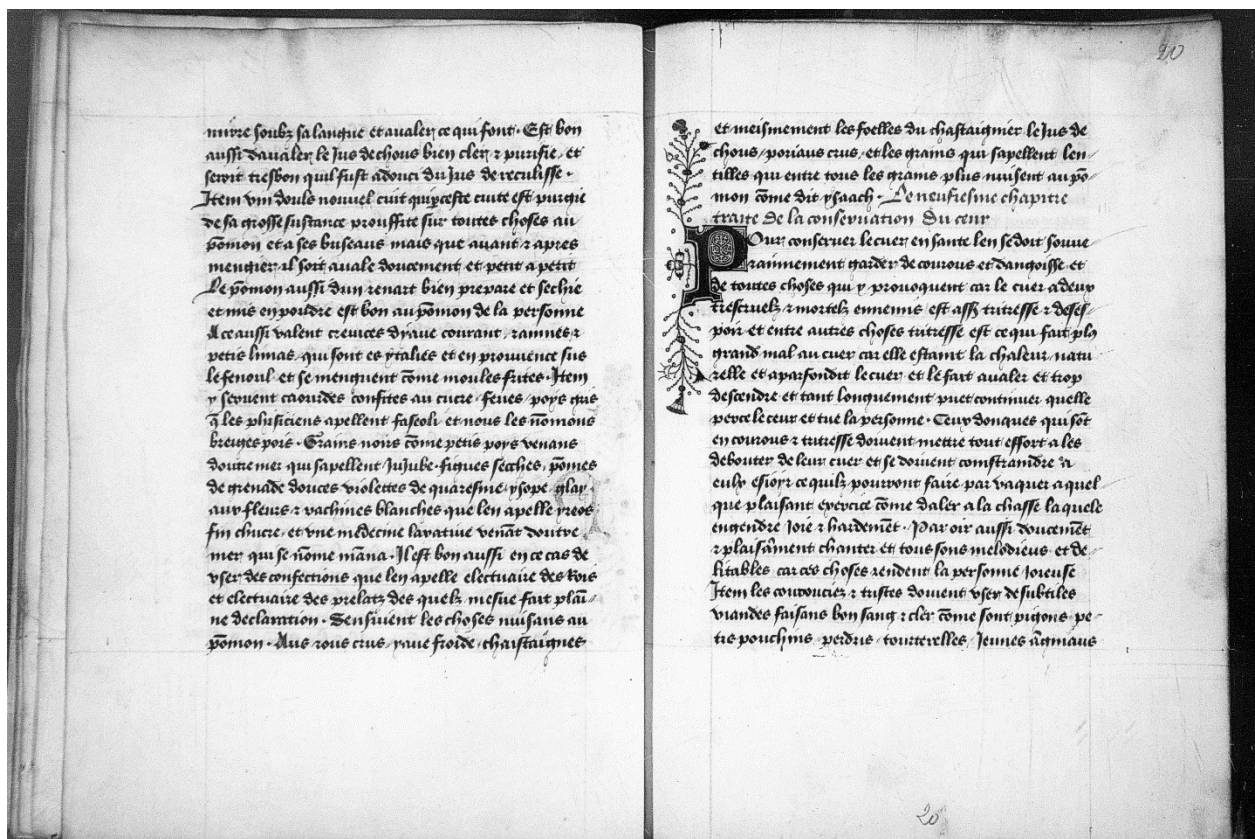 mirre soubz sa langue et avaler ce qui font · Est bon
aussi davaler le Jus de chous bien cler ⁊ purifie, et
seroit tresbon quil fust adouci du Jus de reculisse ·
Item vin douls nouvel cuit qui p̱ ceste cuite est purgie
de sa grosse sustance prouffite sur toutes choses au
pōmon et a ses buseaus mais que avant ⁊ apres
mengier il soit avale doucement et petit a petit
Le pōmon aussi dun renart bien prepare et sechie
et mis en poudre est bon au pōmon de la personne
A ce aussi valent crevices dyaue courant, rainnes ⁊
petis limas, qui sont es ytalies et en prouvence sus
le fenoul et se menguent cōme moules frites · Item
y servent caourdes confites au cucre, feves, poys gris
q̄ les phisiciens apellent faseoli et nous les nōmons
breiges pois · Grains noirs cōme petis poys venans
doutre mer qui sapellent JuJube, figues secches, pōmes
de grenade douces violettes de quaresme, ysope, glay
aux fleurs ⁊ rachines blanches que len apelle yreos
fin chucre, et une medecine laxative venāt doutre
mer qui se nōme māna · Il est bon aussi en ce cas de
user des confections que len apelle electuaire des Rois
et electuaire des prelatz des quelz mesue fait plai-
ne declaration · Sensuivent les choses nuisans au
pōmon · Aus ⁊ ous crus, yaue froide, chastaignes
20
et meismement les foelles du chastaignier le Jus de
chous, poriaus crus, et les grains qui sapellent len-
tilles qui entre tous les grains plus nuisent au pō-
mon cōme dit ysaach · Le neufiesme chapitre
traite de la conservation du ceur
Pour conserver le cuer en sante len se doit souve-
rainnement garder de courous et dangoisse et
de toutes choses qui y provoquent car le cuer a deux
trescruelz ⁊ mortelz ennemis est assz tristresse ⁊ deses-
poir et entre autres choses tristresse est ce qui fait pl9
grand mal au cuer car elle estaint la chaleur natu-
relle et aparfondit le cuer et le fait avaler et trop
descendre et tant longuement puet continuer quelle
perce le ceur et tue la personne · Ceux donques qui sōt
en courous ⁊ tristresse doivent mettre tout effort a les
debouter de leur cuer et se doivent constraindre a
eulx esioyr ce quilz pourront faire par vaquer a quel
que plaisant exercice cōme daler a la chasse la quele
engendre Joie ⁊ hardemēt · Par oir aussi doucemēt
⁊ plaisāment chanter et tous sons melodieus et de-
litables car ces choses rendent la personne Joieuse
Item les courouciez ⁊ tristes doivent user de subtiles
viandes faisans bon sang ⁊ cler cōme sont pigons, pe-
tis pouchins, perdris, tourterelles, Jeunes āgniaus
20